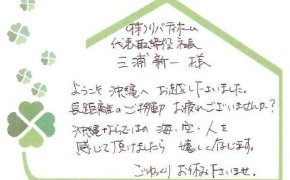 (株)リバティホーム
代表取締役社長
三浦新一様
ようこそ沖縄へお越し下さいました。
長距離のご移動お疲れではございませんか?
沖縄ならではの海・空・人を
感じて頂けましたら嬉しく存じます。
ごゆっくりお休み下さいませ。